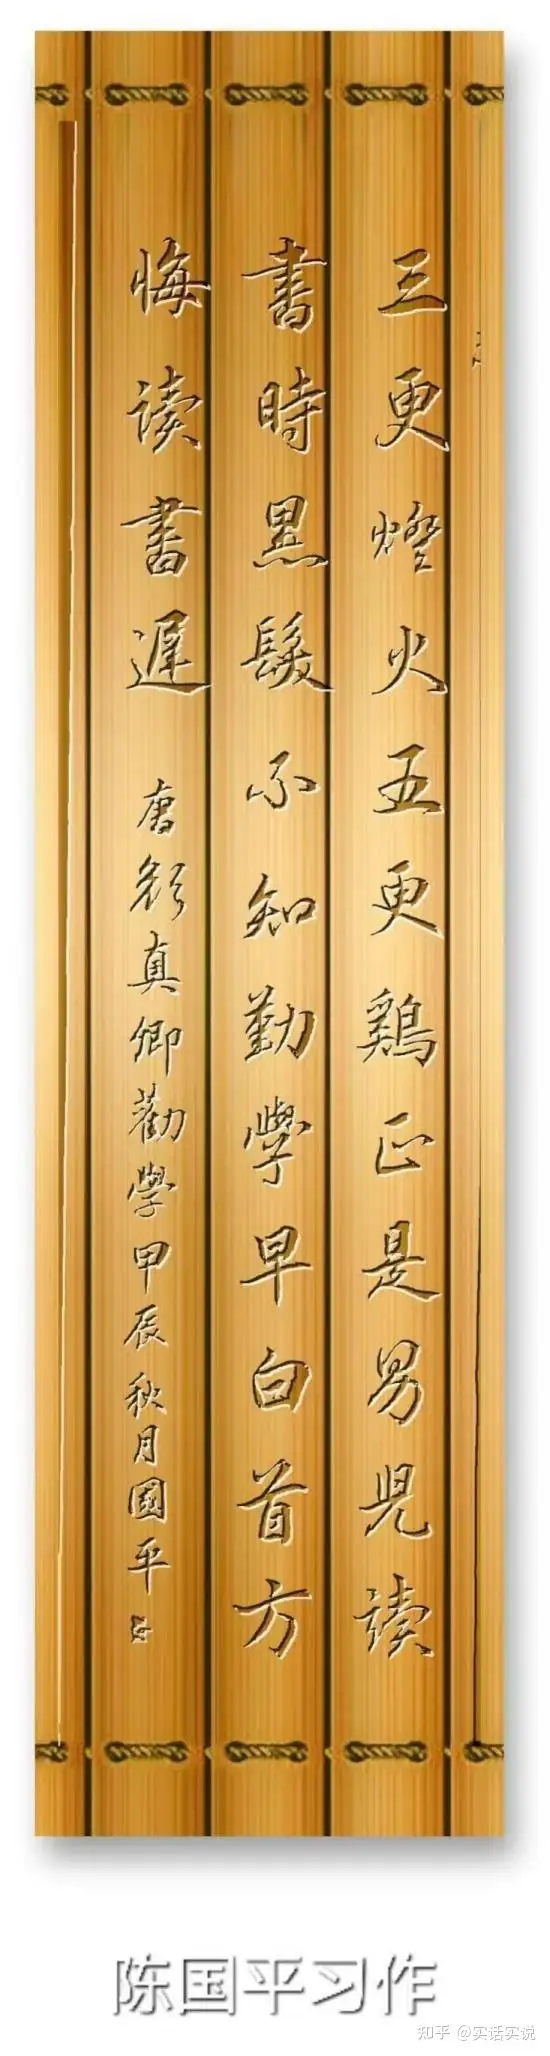 三更燈火五更鷄正是男児读
書時黒髮不知勤學早白首方
悔读書遲 唐顔真卿勸學甲辰秋月國平
陈国平习作
知乎 @实话实说